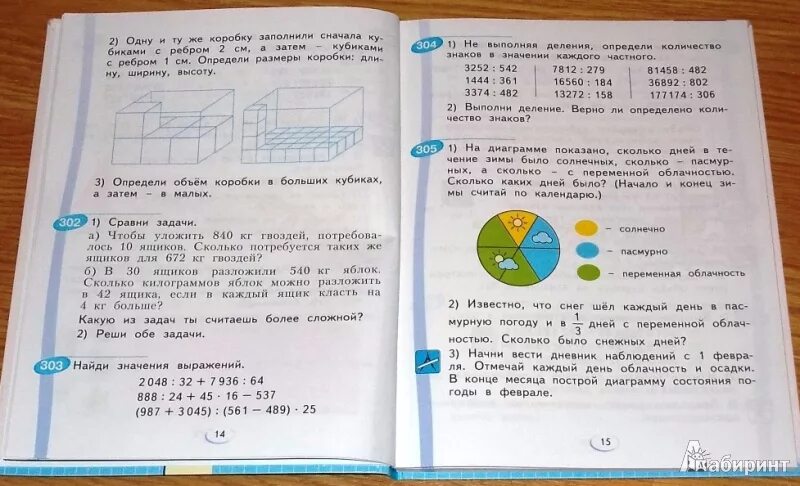 2) Одну и ту же коробку заполнили сначала ку-
биками с ребром 2 см, а затем – кубиками
с ребром 1 см. Определи размеры коробки: дли-
ну, ширину, высоту.
3) Определи объём коробки в больших кубиках,
а затем – в малых.
302 1) Сравни задачи.
а) Чтобы уложить 840 кг гвоздей, потребова-
лось 10 ящиков. Сколько потребуется таких же
ящиков для 672 кг гвоздей?
б) В 30 ящиков разложили 540 кг яблок.
Сколько килограммов яблок можно разложить
в 42 ящика, если в каждый ящик класть на
4 кг больше?
Какую из задач ты считаешь более сложной?
2) Реши обе задачи.
303 Найди значения выражений.
2 048 : 32 + 7 936 : 64
888 : 24 + 45 · 16 – 537
(987 + 3 045) : (561 – 489) · 25
14
304 1) Не выполняя деления, определи количество
знаков в значении каждого частного.
3252 : 542 7812 : 279 81458 : 482
1444 : 361 16560 : 184 36892 : 802
3374 : 482 13272 : 158 177174 : 306
2) Выполни деление. Верно ли определено коли-
чество знаков?
305 1) На диаграмме показано, сколько дней в те-
чение зимы было солнечных, сколько – пасмур-
ных, а сколько – с переменной облачностью.
Сколько каких дней было? (Начало и конец зи-
мы считай по календарю.)
– солнечно
– пасмурно
– переменная облачность
2) Известно, что снег шёл каждый день в пас-
мурную погоду и в 1/3 дней с переменной облач-
ностью. Сколько было снежных дней?
3) Начни вести дневник наблюдений с 1 февра-
ля. Отмечай каждый день облачность и осадки.
В конце месяца построй диаграмму состояния по-
годы в феврале.
15
Лабиринт